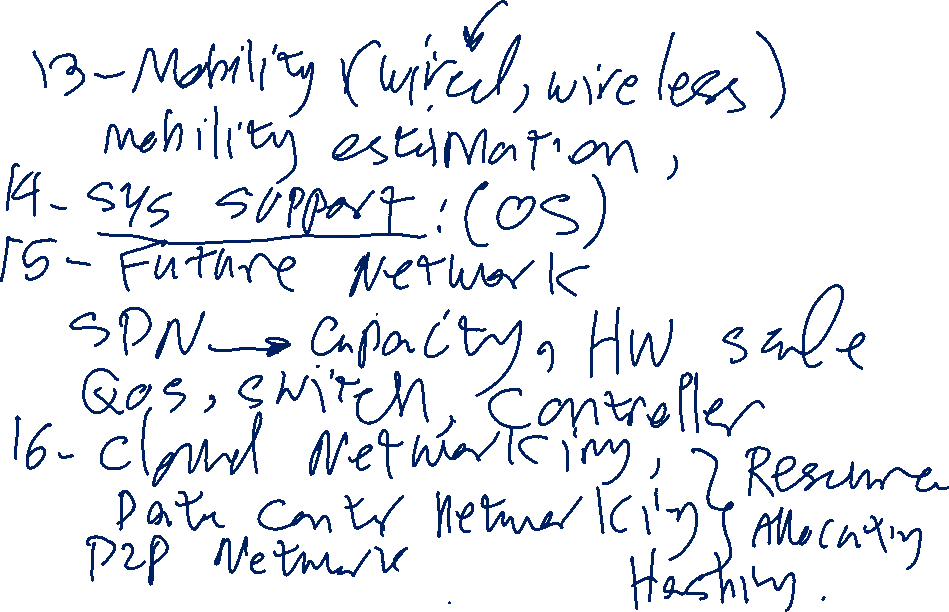 13-Mobility (wired, wireless)
mobility estimation,
14- sys support: (OS)
15- Future Network
SDN → Capacity, HW scale
QoS, switch, Controller
16- cloud Networking, } Resource
Data center Networking } Allocation
P2P Network Hashing.